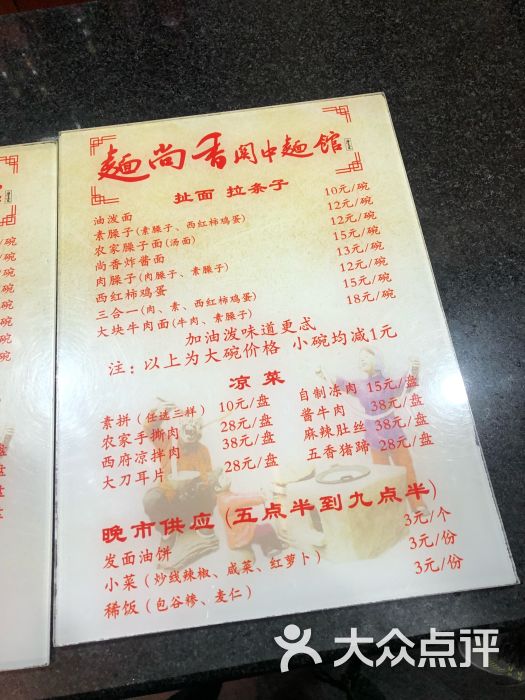 麵尚香关中麵馆
扯面 拉条子
油泼面 10元/碗
素臊子(素臊子、西红柿鸡蛋) 12元/碗
农家臊子面(汤面) 12元/碗
尚香炸酱面 15元/碗
肉臊子(肉臊子、素臊子) 13元/碗
西红柿鸡蛋 12元/碗
三合一(肉、素、西红柿鸡蛋) 15元/碗
大块牛肉面(牛肉、素臊子) 18元/碗
加油泼味道更惑
注：以上为大碗价格 小碗均减1元
凉菜
素拼（任选三样） 10元/盘 自制冻肉 15元/盘
农家手撕肉 28元/盘 酱牛肉 38元/盘
西府凉拌肉 38元/盘 麻辣肚丝 38元/盘
大刀耳片 28元/盘 五香猪蹄 28元/盘
晚市供应(五点半到九点半)
发面油饼 3元/个
小菜（炒线辣椒、咸菜、红萝卜） 3元/份
稀饭（包谷糁、麦仁） 3元/份
/碗
/碗
/碗
/碗
/碗
/碗
/碗
元
/盘
/盘
/盘
大众点评